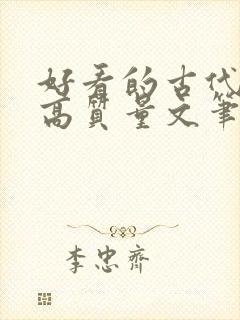 好看的古代
高质量文笔
李忠齐